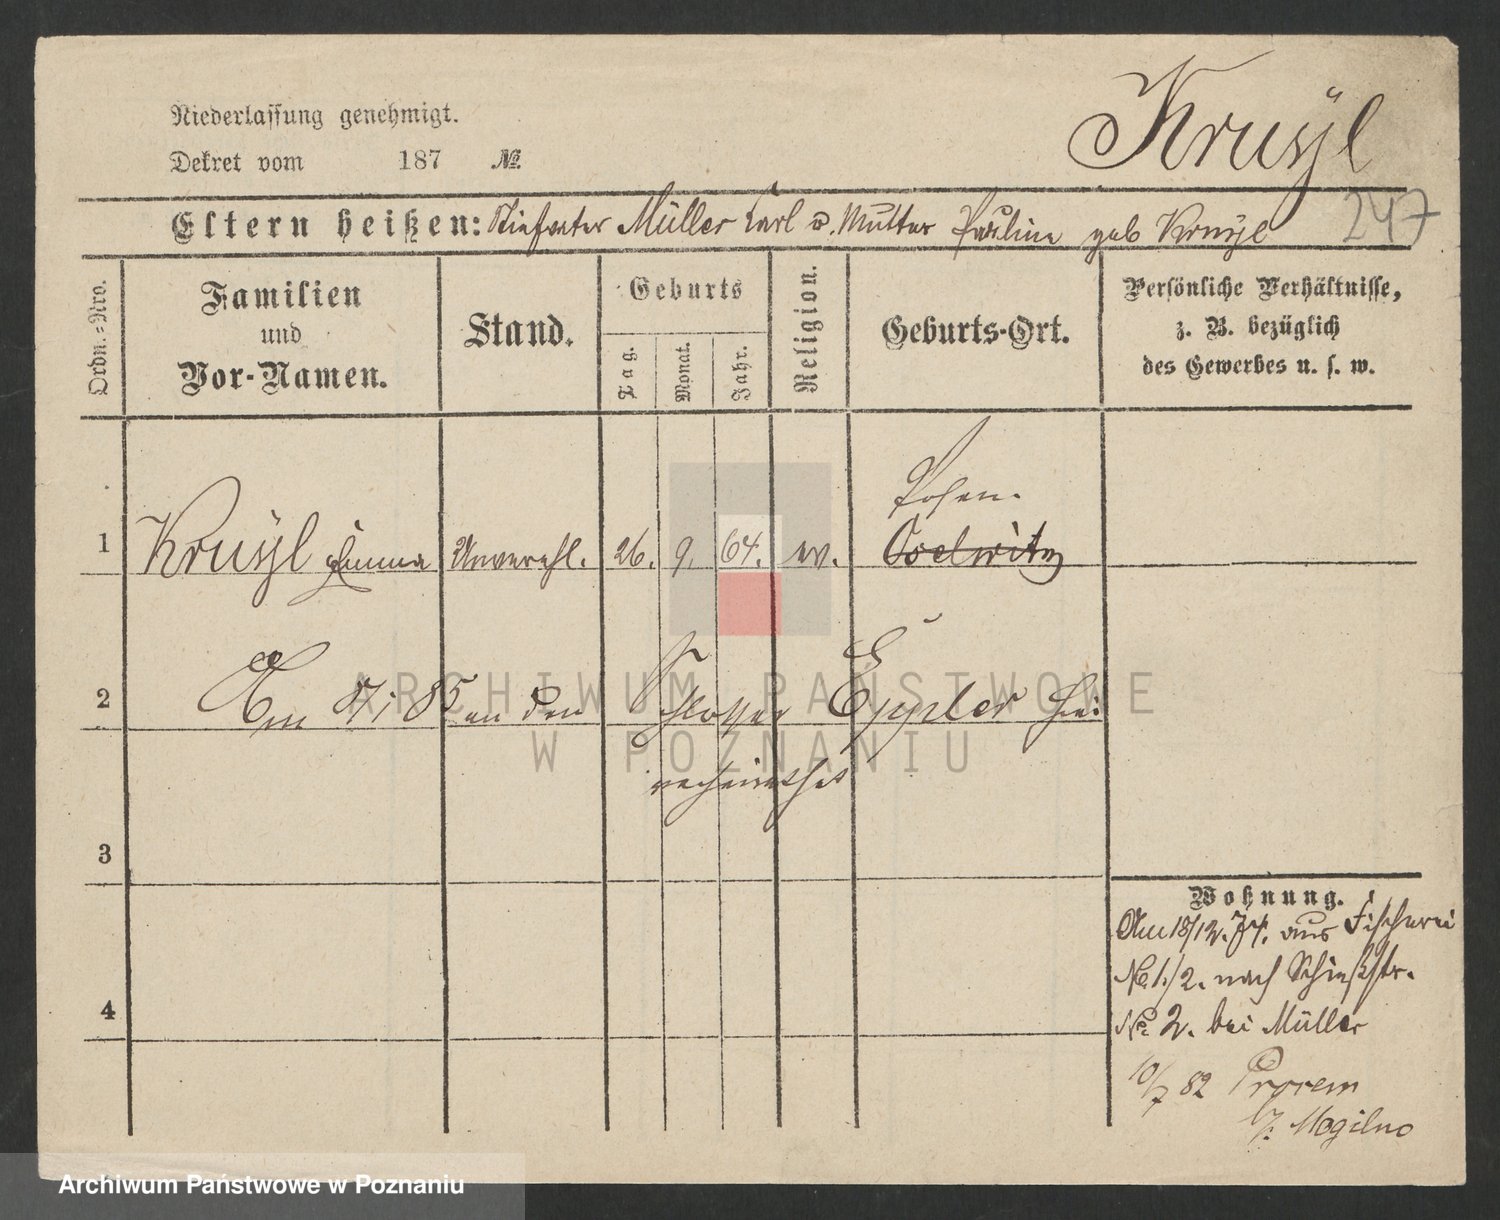 Krusÿl
Niederlassung genehmigt.
Dekret vom 187 №
Eltern heißen: Stiefvater Müller Karl u. Mutter Pauline geb Krusÿl
247
Ordn.-Nro.
Familien
und
Vor-Namen.
Stand.
Geburts
Tag.
Monat.
Jahr.
Religion.
Geburts-Ort.
Persönliche Verhältnisse,
z. B. bezüglich
des Gewerbes u. s. w.
Posen.
1 Krusÿl Emma Unverehl. 26. 9. 64. ev. Oselwitz
2 Am 8/1 85 an den Schlosser Eppler hier
verheirathet
3
4
Wohnung.
Am 18/12. 74. aus Fischerei
No 1./2. nach Schießstr.
No 2. bei Müller
10/7 82 Prorem
b/ Mogilno
ARCHIWUM PAŃSTWOWE
W POZNANIU
Archiwum Państwowe w Poznaniu